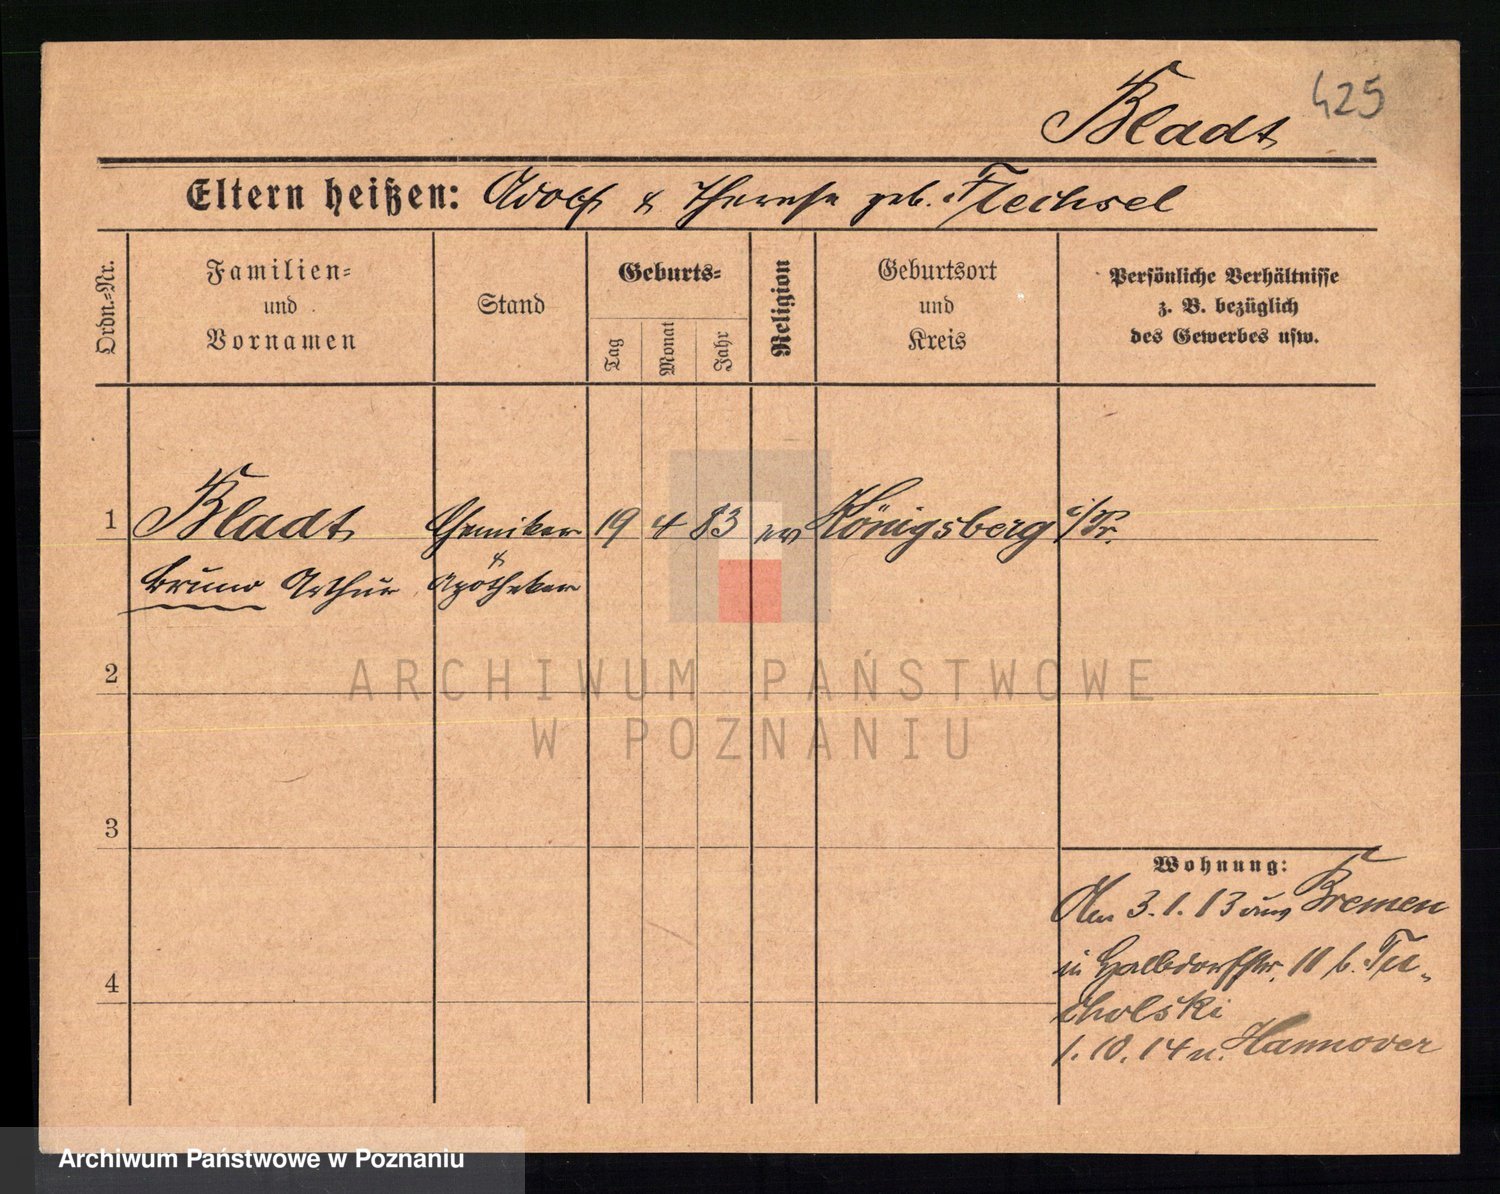 425
Bladt
Eltern heißen: Adolf & Therese geb. Flechsel
Ordn.-Nr.
Familien-
und
Vornamen
Stand
Geburts-
Tag
Monat
Jahr
Religion
Geburtsort
und
Kreis
Persönliche Verhältnisse
z. B. bezüglich
des Gewerbes usw.
1 Bladt Chemiker 19 4 83 ev Königsberg i/Pr.
&
Bruno Arthur Apotheker
2
3
4
Wohnung:
Am 3.1.13 aus Bremen
in Halbdorfstr. 11 b. Tu-
cholski
1.10.14 n. Hannover
ARCHIWUM PAŃSTWOWE
W POZNANIU
Archiwum Państwowe w Poznaniu